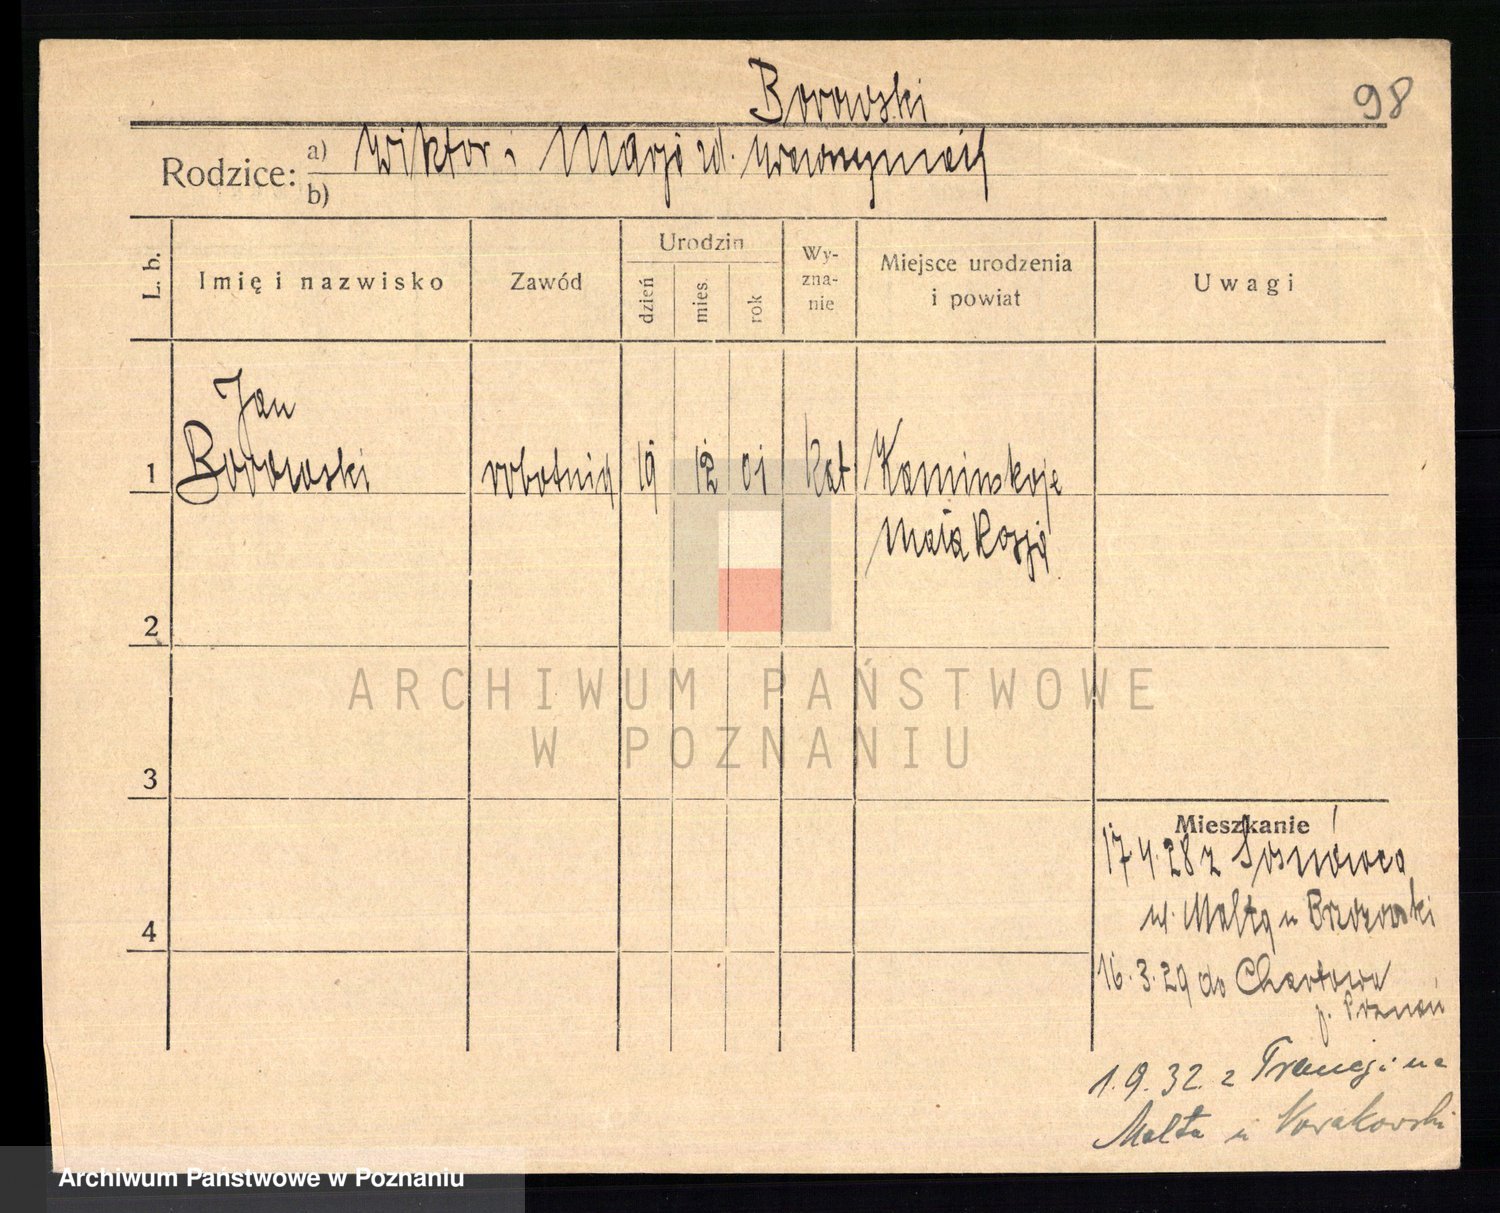 Borowski
98
Rodzice: a) Wiktor i Marja zd.
b)
L. b.
Imię i nazwisko
Zawód
Urodzin
dzień
mies.
rok
Wy-
zna-
nie
Miejsce urodzenia
i powiat
Uwagi
Jan
1 Borowski robotnik 19 12 01 kat Kaminskoje
Rosja
2
3
4
Mieszkanie
17 4. 28 z Sosnowca
ul. Malta u Brzozowski
16. 3. 29 do Chartowo
p. Poznań
1. 9. 32. z Francji na
Malta u Nowakowski
ARCHIWUM PAŃSTWOWE
W POZNANIU
Archiwum Państwowe w Poznaniu